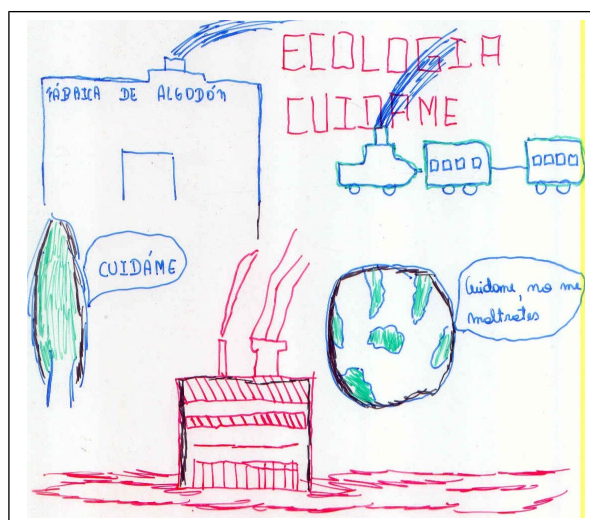 ECOLOGIA
CUIDAME
FÁBRICA DE ALGODÓN
CUIDÁME
Cuidame, no me
maltrates